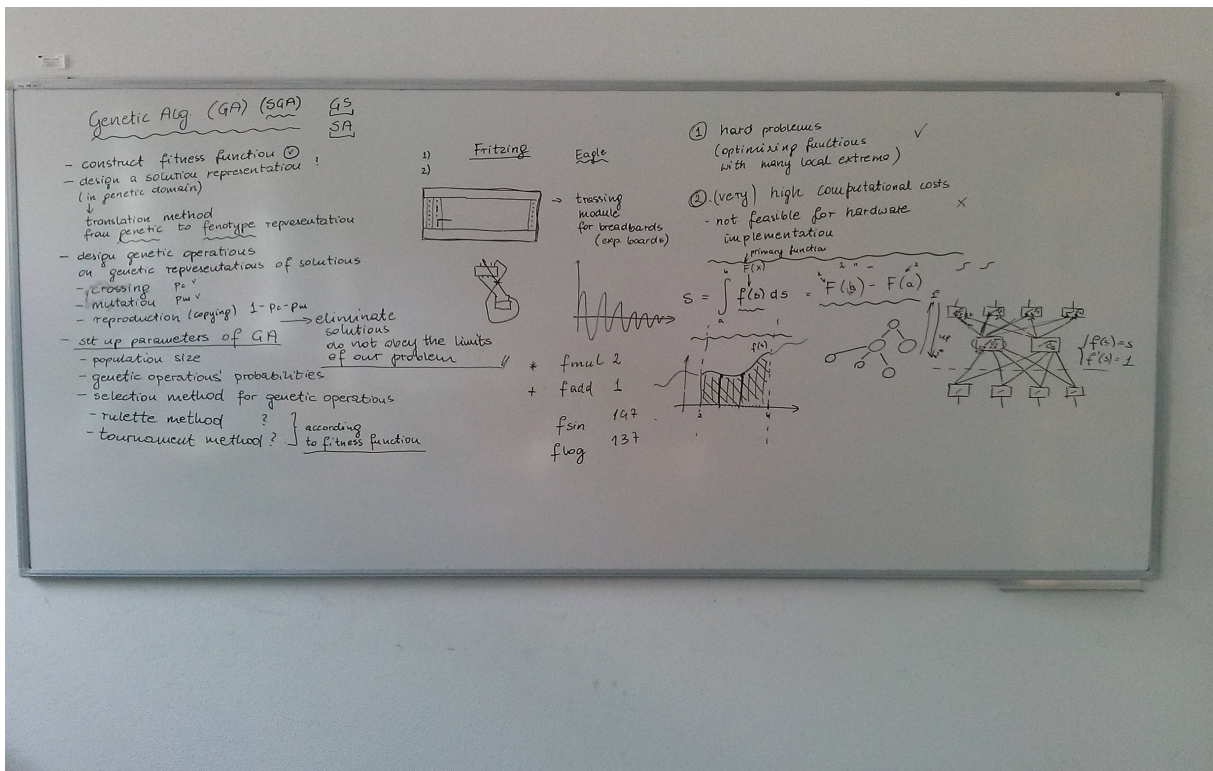 Genetic Alg. (GA) (SGA) GS
SA
- construct fitness function
- design a solution representation !
(in genetic domain)
translation method
from genetic to fenotype representation
- design genetic operations
on genetic representations of solutions
- crossing pc
- mutation pm
- reproduction (copying) 1-pc-pm
eliminate
solutions
do not obey the limits
of our problem
- set up parameters of GA
- population size
- genetic operations' probabilities
- selection method for genetic operations
- rulette method ?
- tournament method ?
according
to fitness function
1)
2)
Fritzing
Eagle
→ trassing
module
for breadbards
(exp. boards)
* fmul 2
+ fadd 1
fsin 147
flog 137
① hard problems ✓
(optimising functions
with many local extreme)
②.(very) high computational costs
- not feasible for hardware x
implementation
primary function
F(x)
S = ∫ f(s) ds = F(b) - F(a)
b
a
f(s)
f(s)=s
f'(s)=1